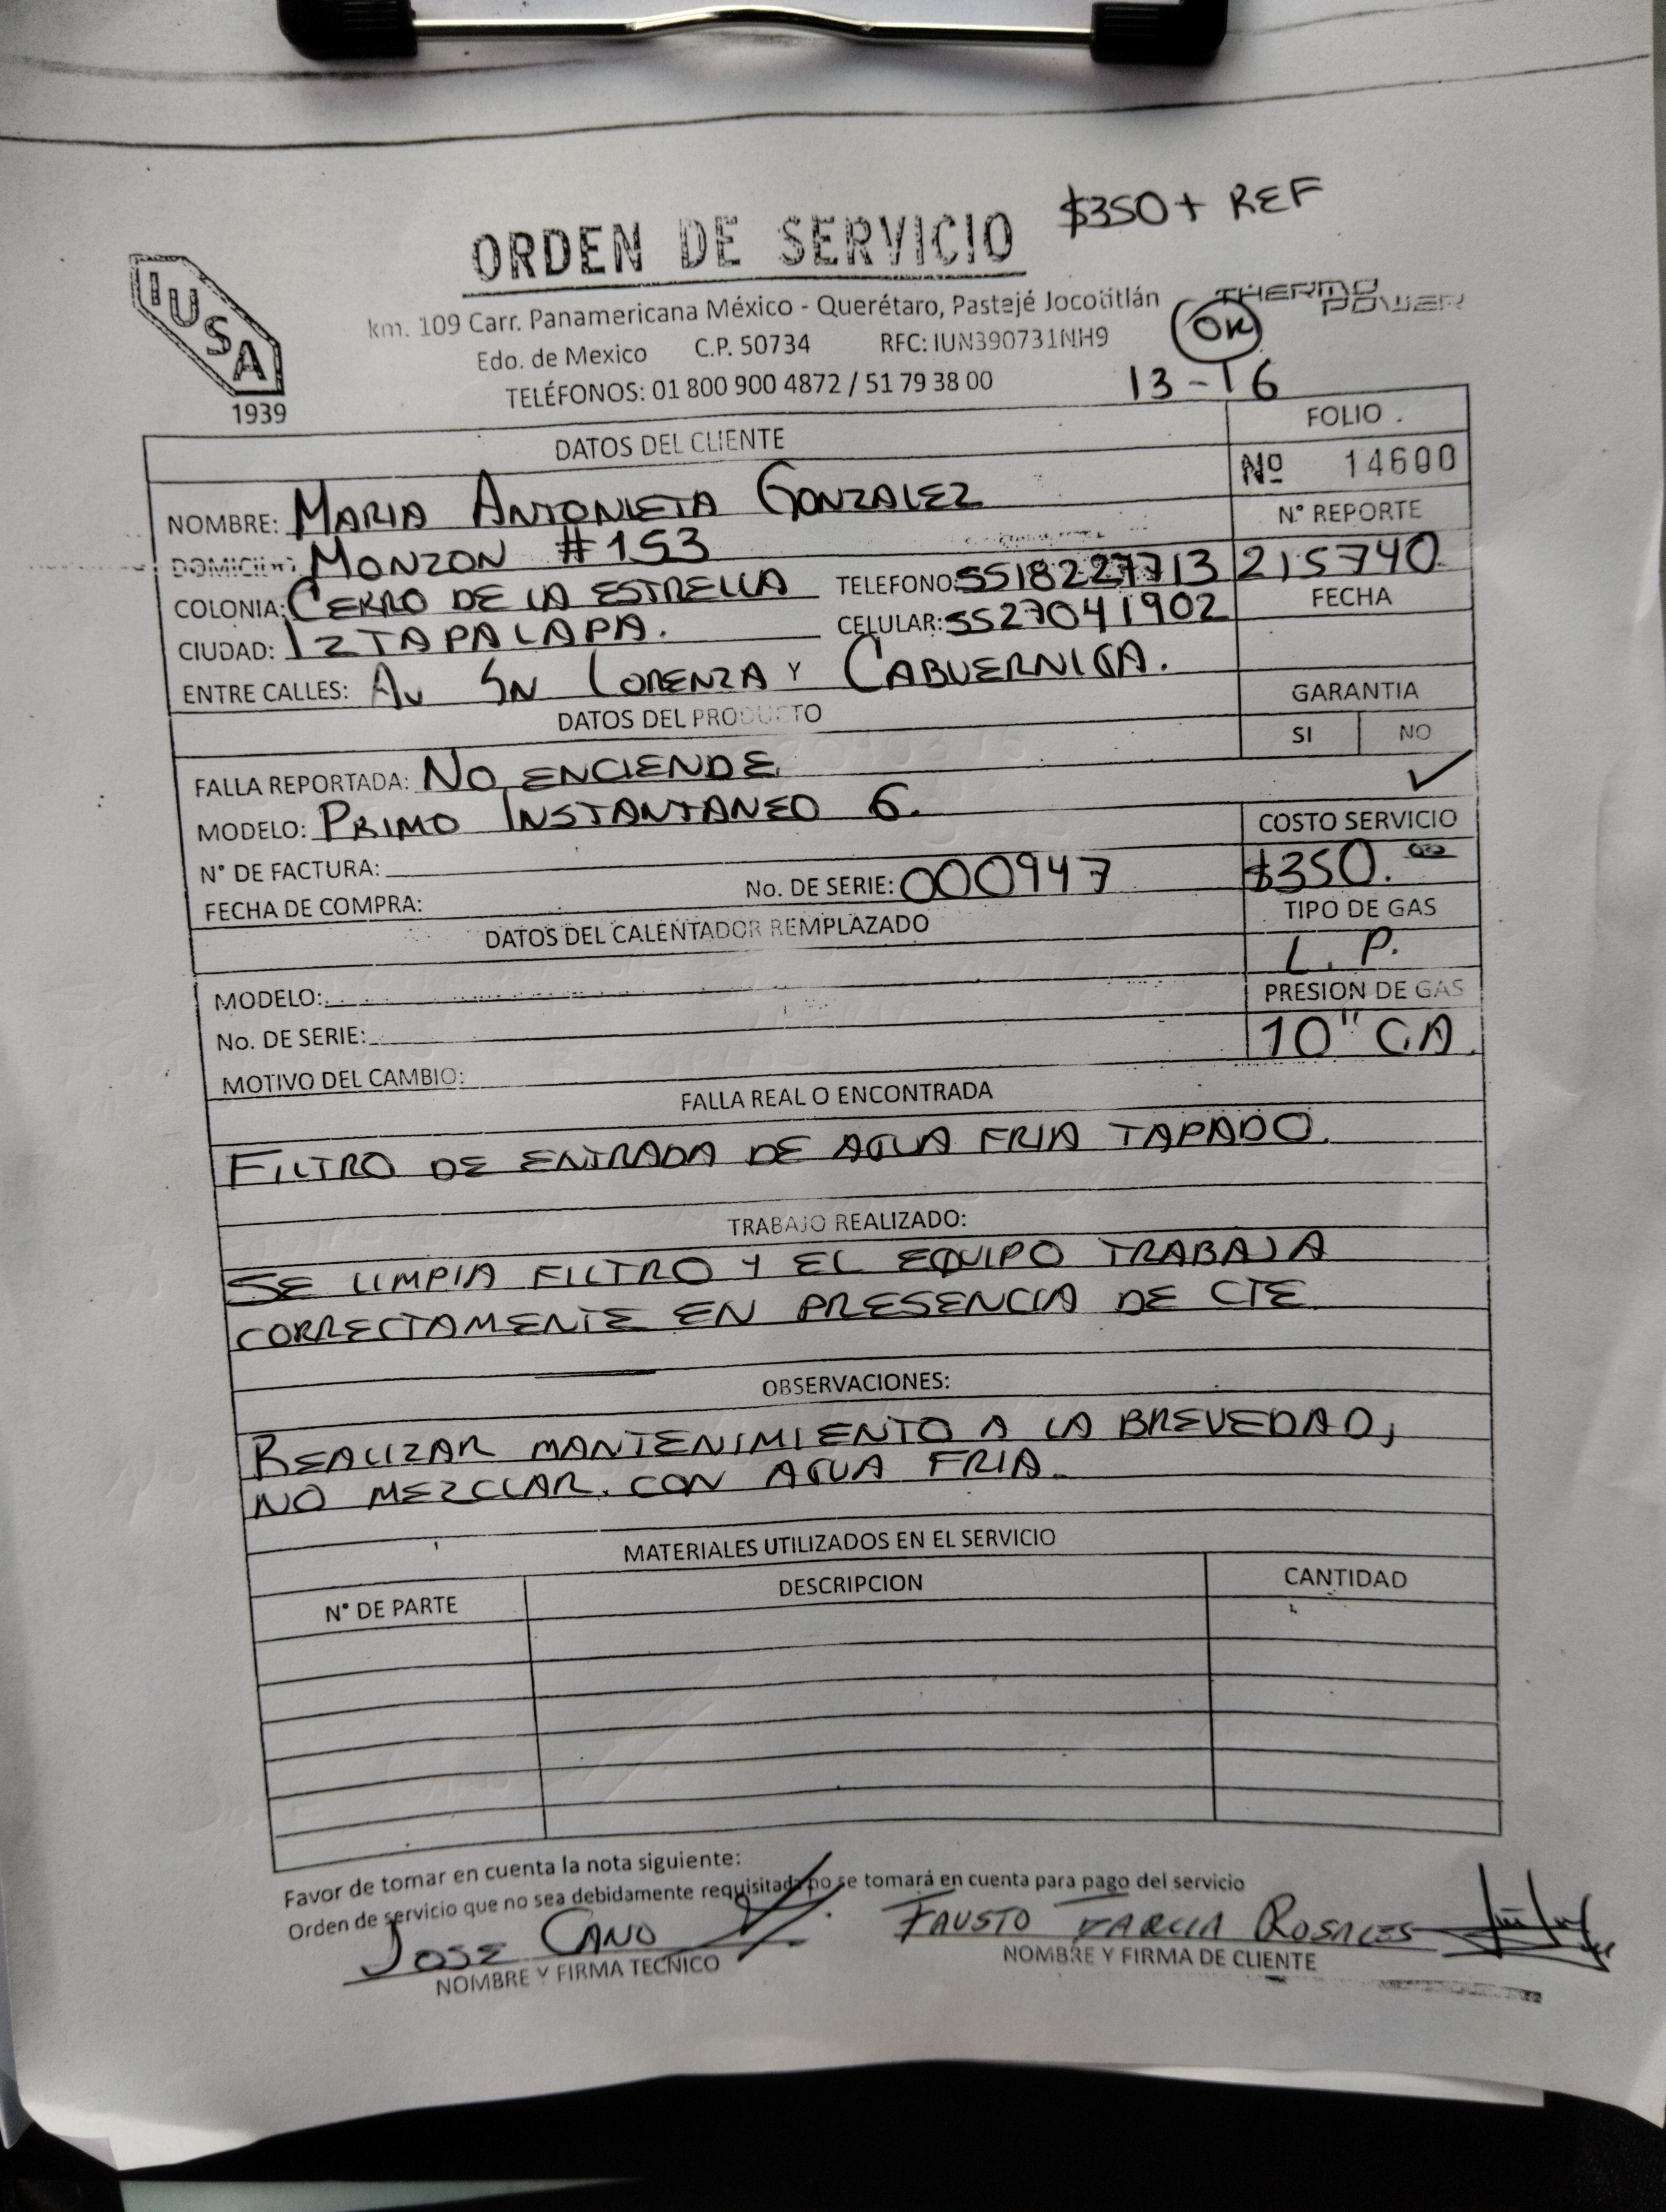 ORDEN DE SERVICIO $350 + REF
IUSA
1939
THERMO POWER
km. 109 Carr. Panamericana México - Querétaro, Pastejé Jocotitlán
OK
Edo. de Mexico C.P. 50734 RFC: IUN390731NH9
TELÉFONOS: 01 800 900 4872 / 51 79 38 00
13-16
DATOS DEL CLIENTE
FOLIO
Nº 14600
NOMBRE: MARIA ANTONIETA GONZALEZ
N° REPORTE
DOMICILIO: MONZON #153
215740
COLONIA: CERRO DE LA ESTRELLA TELEFONO: 5518227713
FECHA
CIUDAD: IZTAPALAPA. CELULAR: 5527041902
ENTRE CALLES: AV SN LORENZA Y CABUERNIGA.
GARANTIA
DATOS DEL PRODUCTO
SI NO
FALLA REPORTADA: NO ENCIENDE
✓
MODELO: PRIMO INSTANTANEO 6.
COSTO SERVICIO
N° DE FACTURA:
No. DE SERIE: 000947
$350.00
FECHA DE COMPRA:
TIPO DE GAS
DATOS DEL CALENTADOR REMPLAZADO
L. P.
MODELO:
PRESION DE GAS
No. DE SERIE:
10" CA.
MOTIVO DEL CAMBIO:
FALLA REAL O ENCONTRADA
FILTRO DE ENTRADA DE AGUA FRIA TAPADO.
TRABAJO REALIZADO:
SE LIMPIA FILTRO Y EL EQUIPO TRABAJA
CORRECTAMENTE EN PRESENCIA DE CTE.
OBSERVACIONES:
REALIZAR MANTENIMIENTO A LA BREVEDAD,
NO MEZCLAR. CON AGUA FRIA.
MATERIALES UTILIZADOS EN EL SERVICIO
N° DE PARTE DESCRIPCION CANTIDAD
Favor de tomar en cuenta la nota siguiente:
Orden de servicio que no sea debidamente requisitada no se tomará en cuenta para pago del servicio
JOSE CANO FAUSTO GARCIA ROSALES
NOMBRE Y FIRMA TECNICO NOMBRE Y FIRMA DE CLIENTE